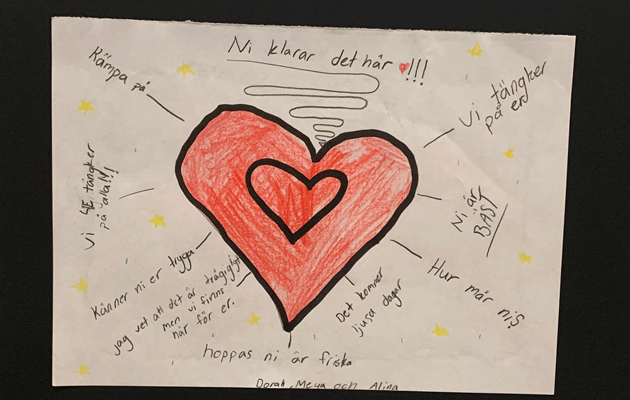 Ni klarar det här !!!
Kämpa på
Vi tängker
på er
Vi tängker
på alla!!!
Ni är
BÄST
Känner ni er trygga
Hur mår ni?
jag vet att det är
men vi finns
här för er.
Det kommer
ljusa dagar
hoppas ni är friska
Dorah, Meya och Alina